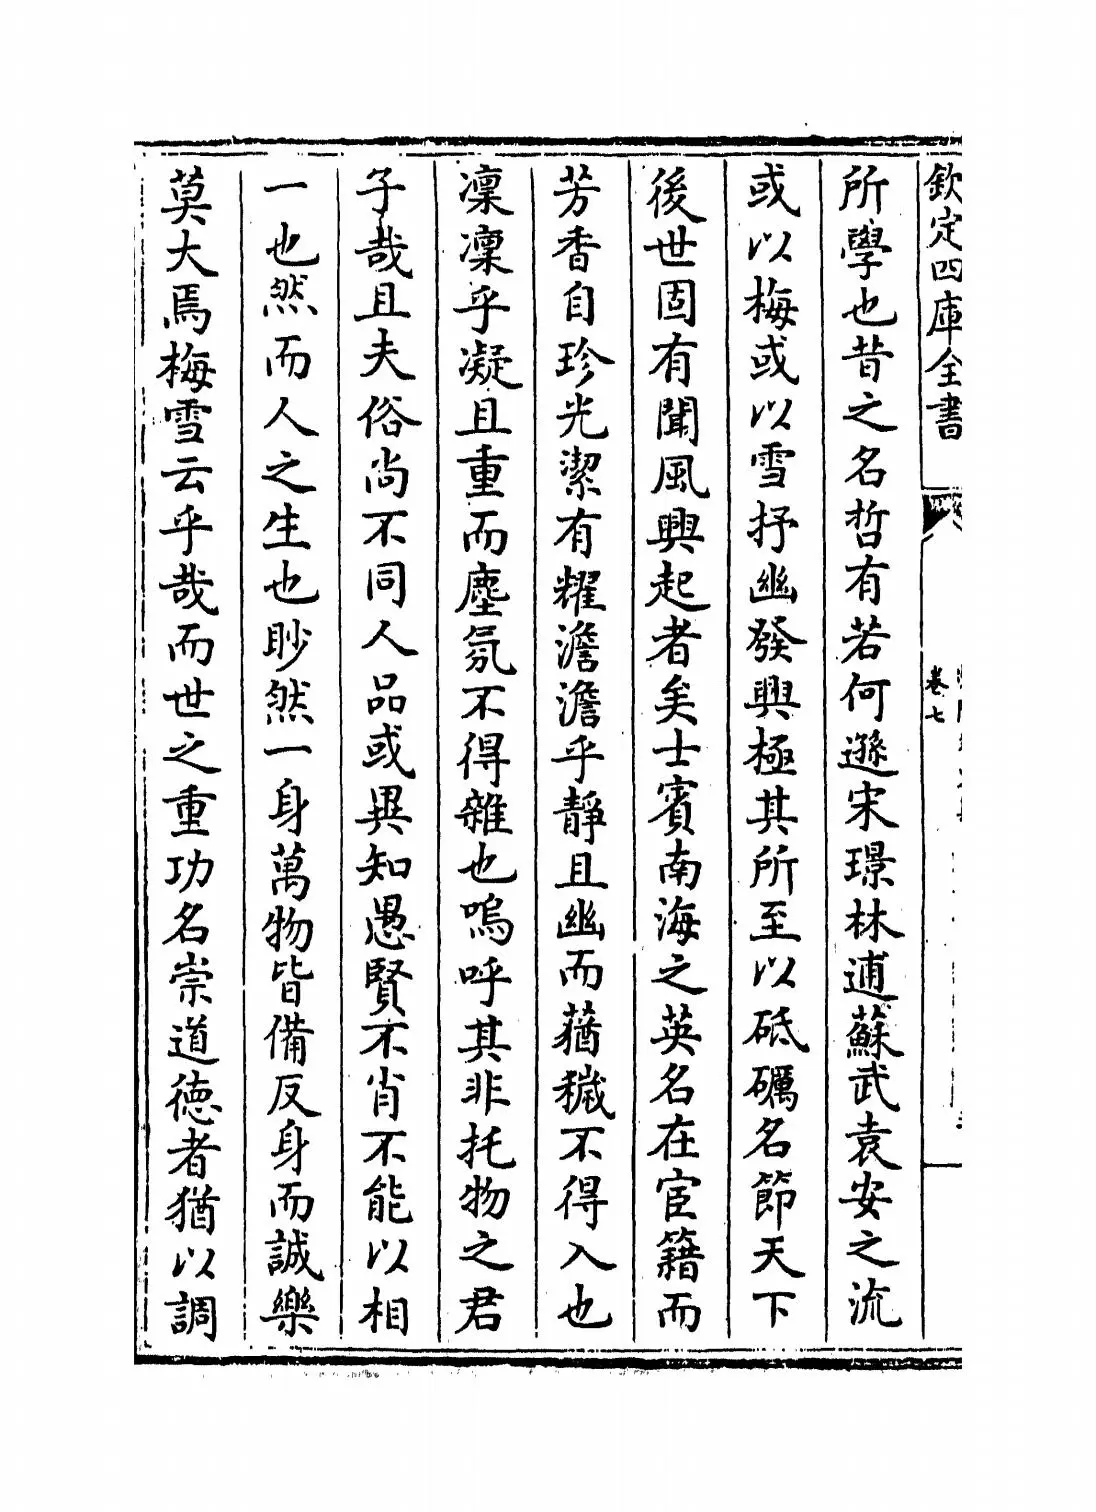 欽定四庫全書
卷七
所學也昔之名哲有若何遜宋璟林逋蘇武袁安之流
或以梅或以雪抒幽發興極其所至以砥礪名節天下
後世固有聞風興起者矣士賓南海之英名在宦籍而
芳香自珍光潔有耀澹澹乎靜且幽而蕕穢不得入也
凜凜乎凝且重而塵氛不得雜也嗚呼其非托物之君
子哉且夫俗尚不同人品或異知愚賢不肖不能以相
一也然而人之生也眇然一身萬物皆備反身而誠樂
莫大焉梅雪云乎哉而世之重功名崇道徳者猶以調